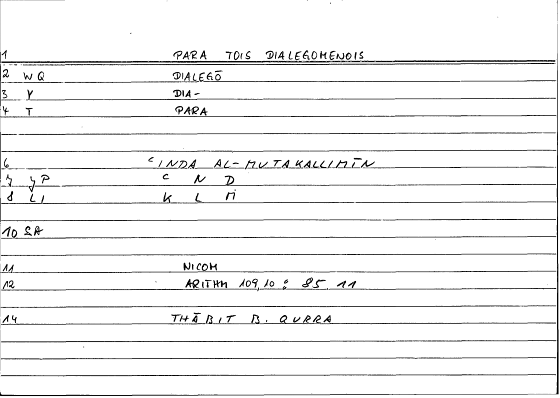 1 PARA TOIS DIALEGOMENOIS
2 WQ DIALEGŌ
3 Y DIA-
4 T PARA
6 ʿINDA AL-MUTAKALLIMĪN
7 JP ʿ N D
8 LI K L M
10 SA
11 NICOM
12 ARITHM 109,10 : 85 11
14 THĀBIT B. QURRA